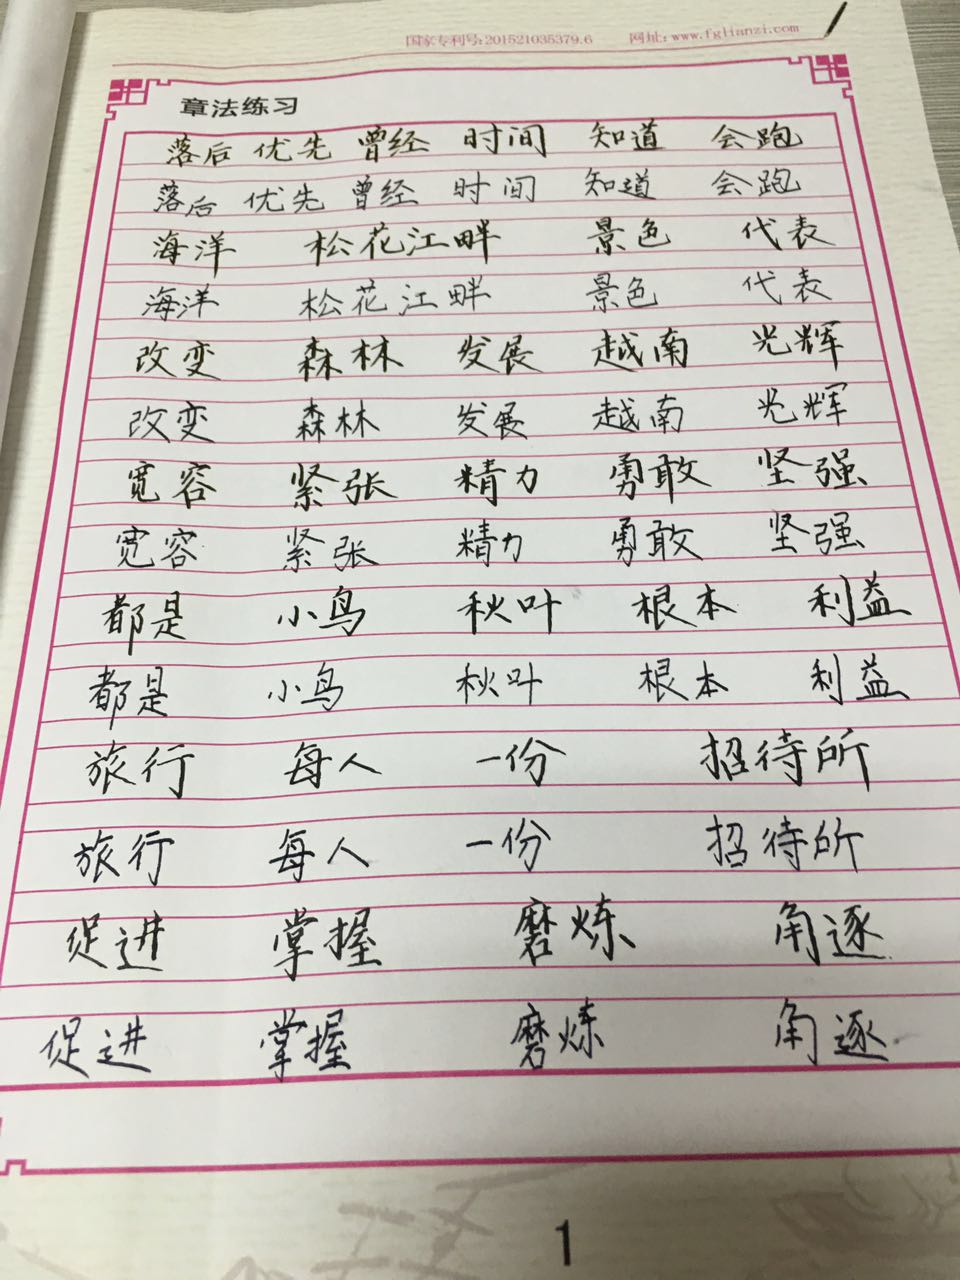 国家专利号:201521035379.6 网址:www.fglianzi.com
章法练习
落后 优先 曾经 时间 知道 会跑
落后 优先 曾经 时间 知道 会跑
海洋 松花江畔 景色 代表
海洋 松花江畔 景色 代表
改变 森林 发展 越南 光辉
改变 森林 发展 越南 光辉
宽容 紧张 精力 勇敢 坚强
宽容 紧张 精力 勇敢 坚强
都是 小鸟 秋叶 根本 利益
都是 小鸟 秋叶 根本 利益
旅行 每人 一份 招待所
旅行 每人 一份 招待所
促进 掌握 磨炼 角逐
促进 掌握 磨炼 角逐
1